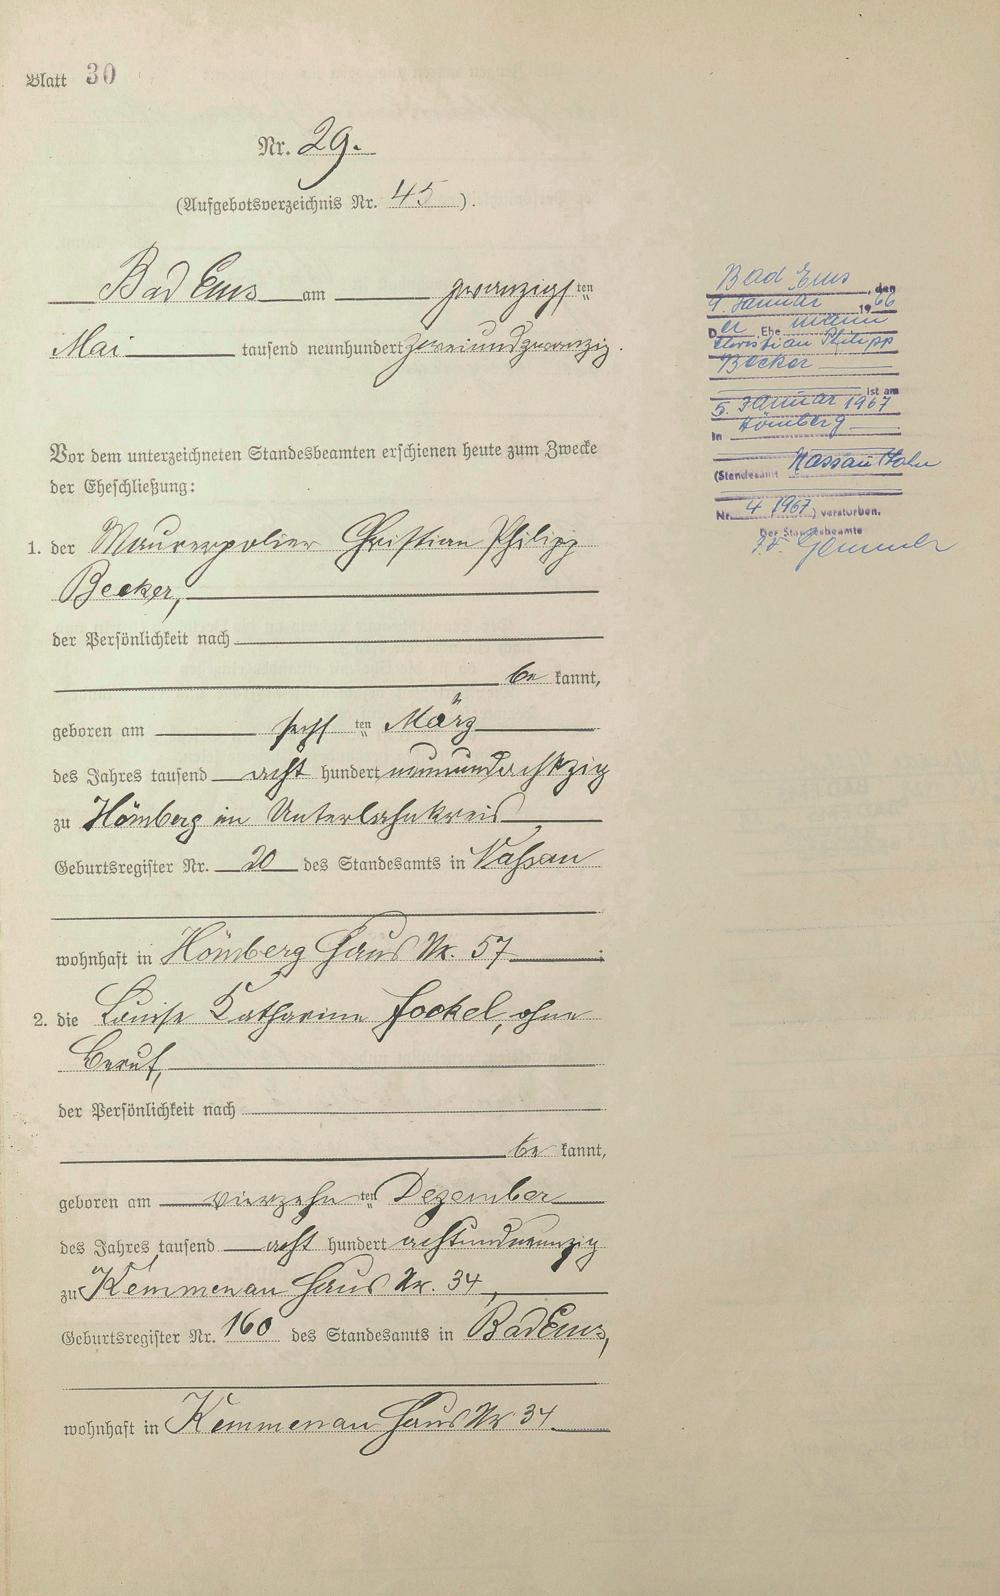 Blatt 30
Nr. 29.
(Aufgebotsverzeichnis Nr. 45).
Bad Ems am zwanzigsten
Mai tausend neunhundert zweiundzwanzig.
Vor dem unterzeichneten Standesbeamten erschienen heute zum Zwecke
der Eheschließung:
1. der Maurerpolier Christian Philipp
Becker,
der Persönlichkeit nach
be kannt,
geboren am sechs ten März
des Jahres tausend acht hundert neunundachtzig
zu Hömberg im Unterlahnkreis
Geburtsregister Nr. 20 des Standesamts in Nassau
wohnhaft in Hömberg Haus Nr. 57;
2. die Louise Katharine Fockel, ohne
Beruf,
der Persönlichkeit nach
be kannt,
geboren am vierzehn ten Dezember
des Jahres tausend acht hundert achtundneunzig
zu Kemmenau Haus Nr. 34,
Geburtsregister Nr. 160 des Standesamts in Bad Ems,
wohnhaft in Kemmenau Haus Nr 34
Bad Ems, den
9. Januar 1966
Der Ehemann
Christian Philipp
Becker
ist am
5. Januar 1967
in Hömberg
(Standesamt Nassau/Lahn
Nr. 4/1967) verstorben.
Der Standesbeamte